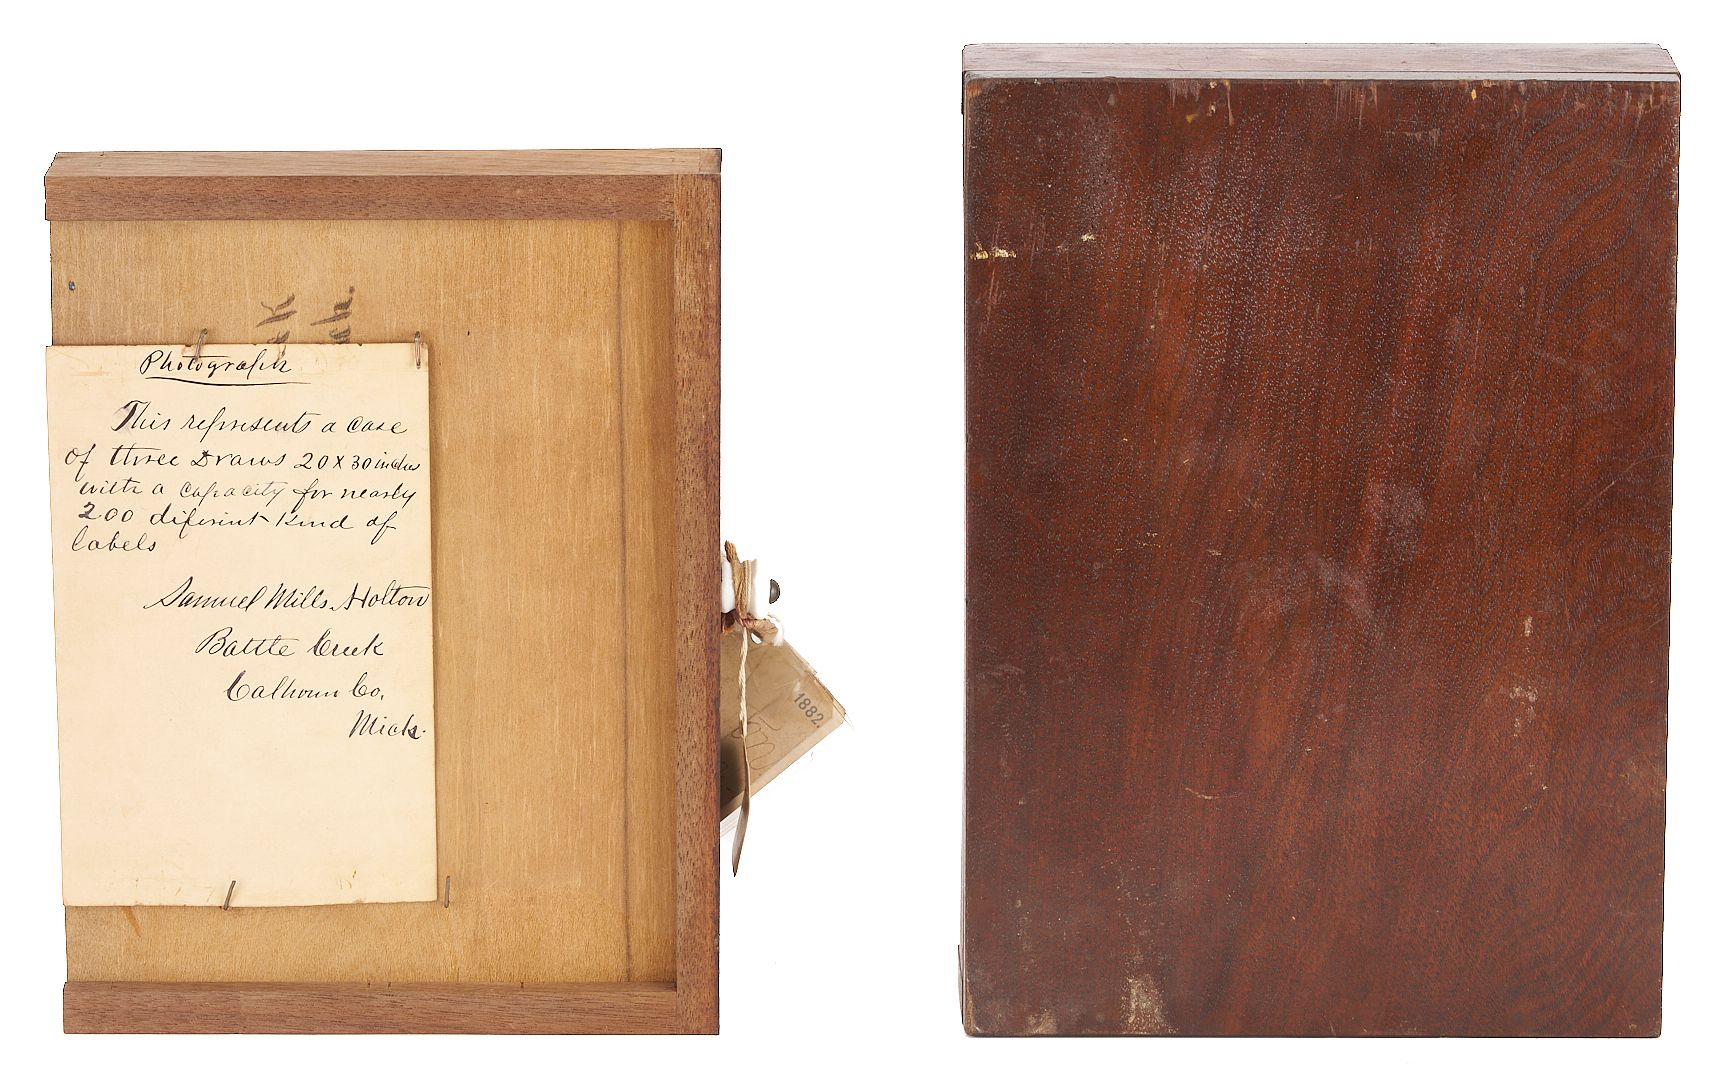 Photograph
This represents a case
of three Draws 20 x 30 inches
with a capacity for nearly
200 diferint kind of
labels
Samuel Mills Holton
Battle Creek
Calhoun Co,
Mich.
1882.